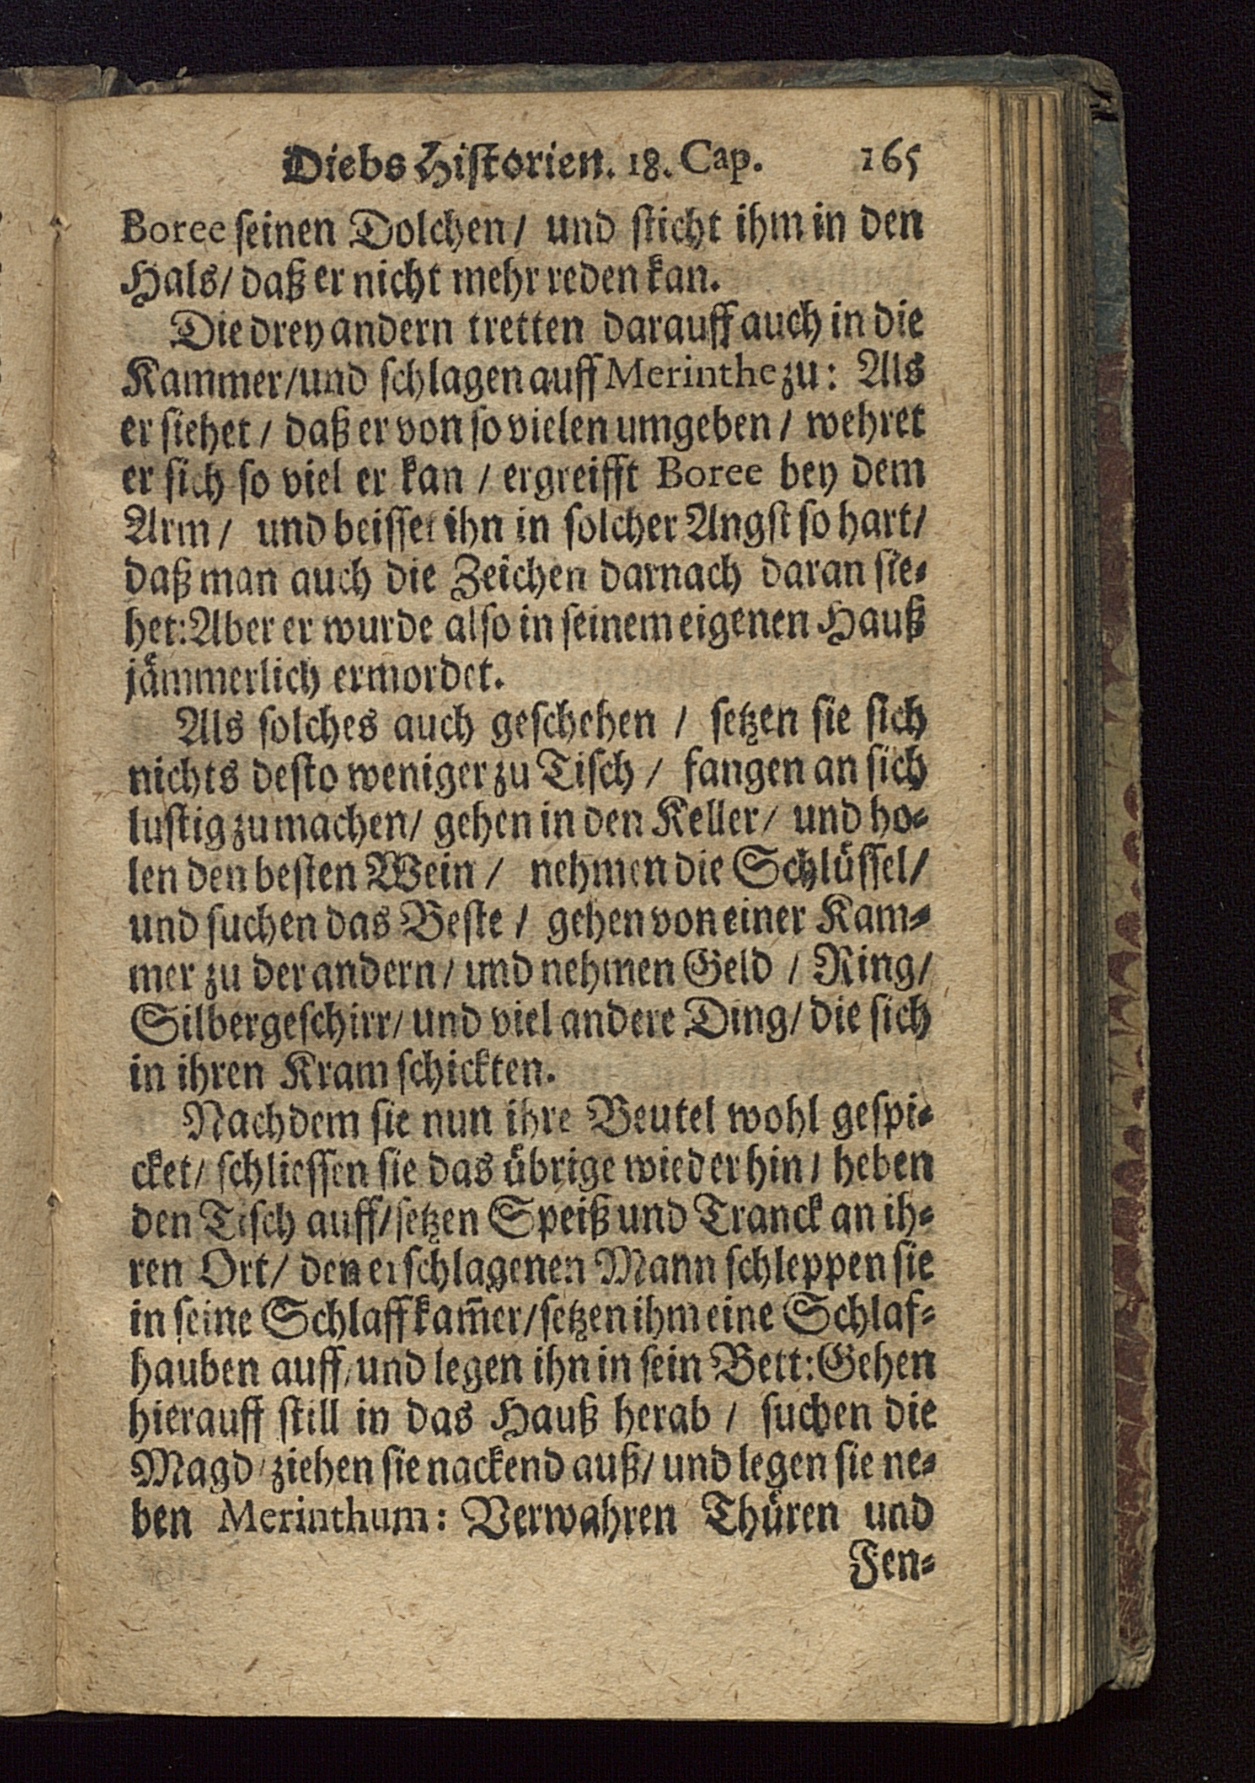 Diebs Historien. 18. Cap. 165
Boree seinen Dolchen / und sticht ihm in den
Hals / daß er nicht mehr reden kan.
Die drey andern tretten darauff auch in die
Kammer / und schlagen auff Merinthe zu: Als
er siehet / daß er von so vielen umgeben / wehret
er sich so viel er kan / ergreifft Boree bey dem
Arm / und beisset ihn in solcher Angst so hart /
daß man auch die Zeichen darnach daran sie-
het: Aber er wurde also in seinem eigenen Hauß
jämmerlich ermordet.
Als solches auch geschehen / setzen sie sich
nichts desto weniger zu Tisch / fangen an sich
lustig zu machen / gehen in den Keller / und ho-
len den besten Wein / nehmen die Schlüssel /
und suchen das Beste / gehen von einer Kam-
mer zu der andern / und nehmen Geld / Ring /
Silbergeschirr / und viel andere Ding / die sich
in ihren Kram schickten.
Nachdem sie nun ihre Beutel wohl gespi-
cket / schliessen sie das übrige wieder hin / heben
den Tisch auff / setzen Speiß und Tranck an ih-
ren Ort / den erschlagenen Mann schleppen sie
in seine Schlaffkam̃er / setzen ihm eine Schlaf-
hauben auff / und legen ihn in sein Bett: Gehen
hierauff still in das Hauß herab / suchen die
Magd / ziehen sie nackend auß / und legen sie ne-
ben Merinthum: Verwahren Thüren und
Fen-